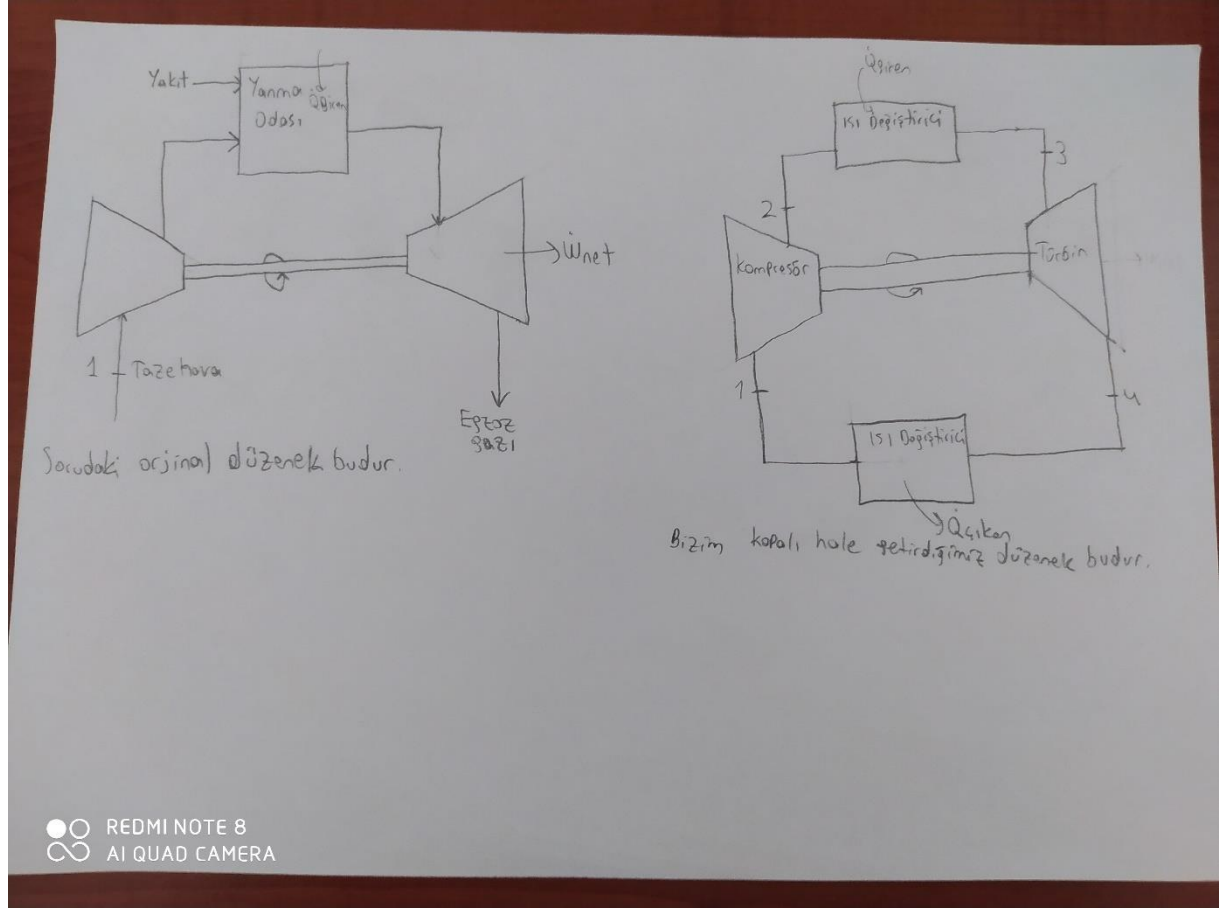 Yakıt
Yanma
Odası
Q̇giren
Ẇnet
1 Taze hava
Egzoz
gazı
Sorudaki orjinal düzenek budur.
Q̇giren
Isı Değiştirici
2
3
Kompresör
Türbin
1
4
Isı Değiştirici
Q̇çıkan
Bizim kapalı hale getirdiğimiz düzenek budur.
REDMI NOTE 8
AI QUAD CAMERA